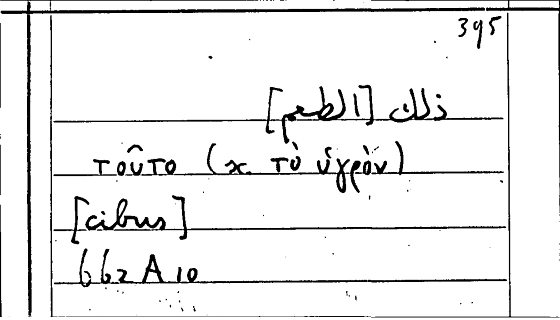 395
ذلك [الطعم]
τοῦτο (x. τὸ ὑγρὸν)
[cibus]
662 A 10